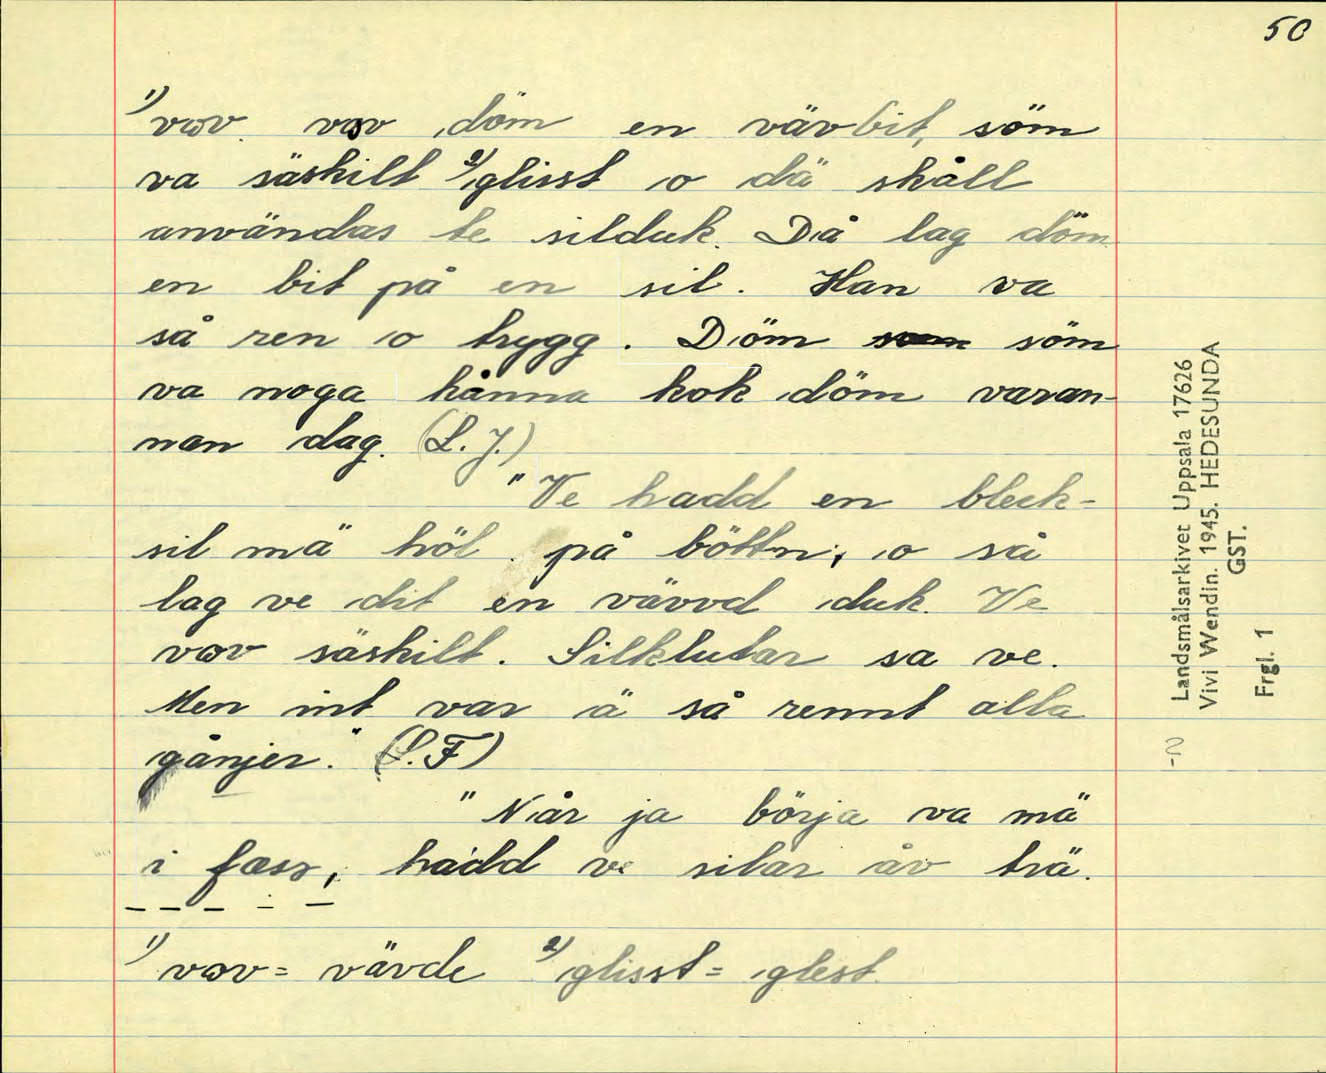 50
1) vov vov döm en vävbit, söm
va säskilt 2) glisst o dä skåll
användas te silduk. Då lag döm
en bit på en sil. Han va
så ren o trygg. Döm söm
va noga hånna kok döm varan-
nan dag. (L. J.)
"Ve hadd en bleck-
sil mä höl på böttn, o så
lag ve dit en vävvd duk. Ve
vov säskilt. Silklutar sa ve.
Men int var ä så rennt alla
gånjer." (L. F)
"Når ja börja va mä
i fæss, hadd ve silar åv trä.
1) vov = vävde 2) glisst = glest.
Landsmålsarkivet Uppsala 17626
Vivi Wendin. 1945. HEDESUNDA
GST.
Frgl. 1